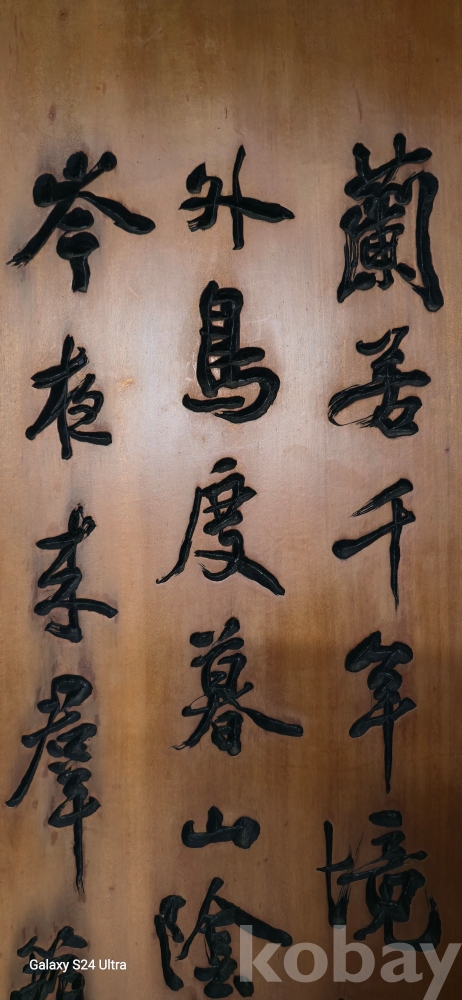 蘭若千年境
外鳥度暮山陰
岑夜来羣
Galaxy S24 Ultra
kobay